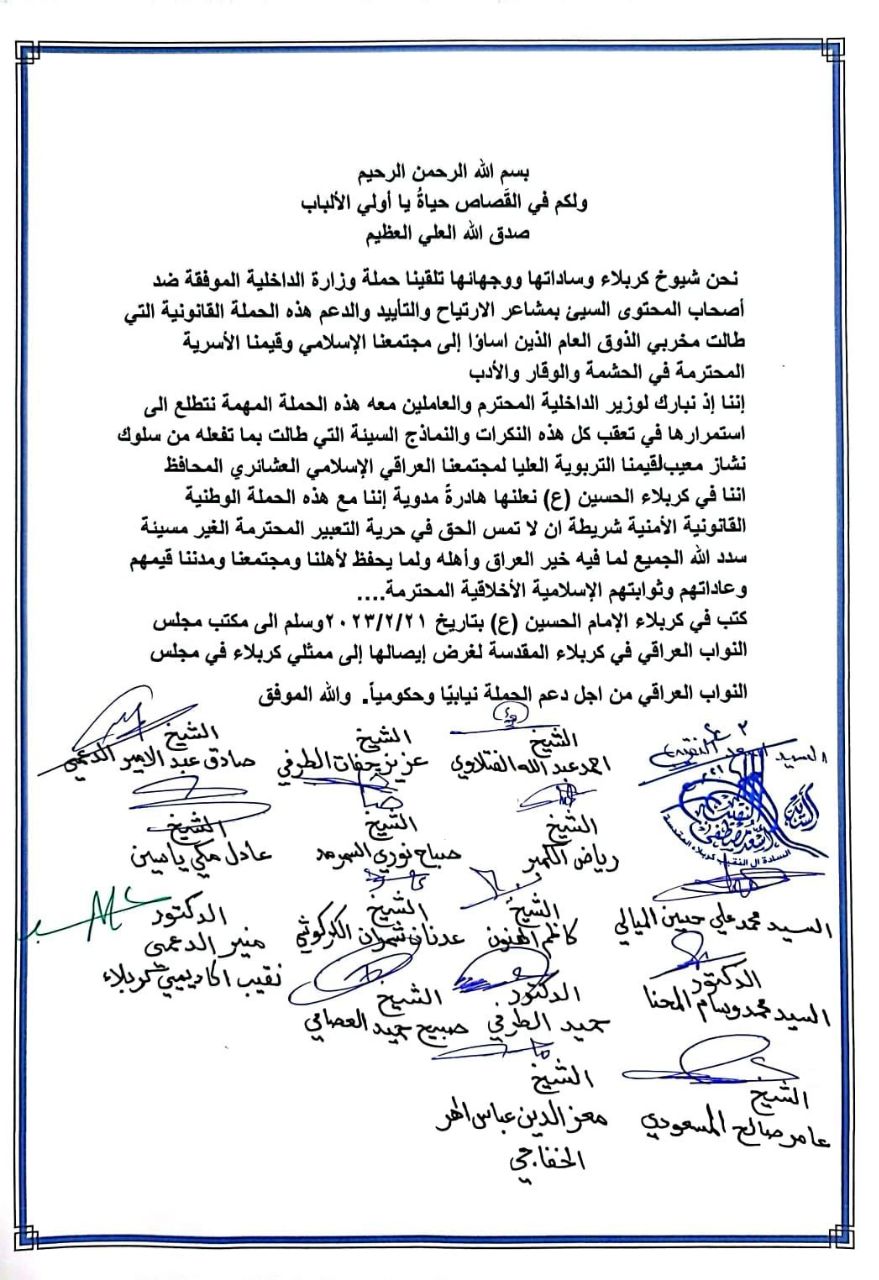 بسم الله الرحمن الرحيم
ولكم في القَصاص حياةُ يا أولي الألباب
صدق الله العلي العظيم
نحن شيوخ كربلاء وساداتها ووجهائها تلقينا حملة وزارة الداخلية الموفقة ضد
أصحاب المحتوى السيئ بمشاعر الارتياح والتأييد والدعم هذه الحملة القانونية التي
طالت مخربي الذوق العام الذين اساؤا إلى مجتمعنا الإسلامي وقيمنا الأسرية
المحترمة في الحشمة والوقار والأدب
إننا إذ نبارك لوزير الداخلية المحترم والعاملين معه هذه الحملة المهمة نتطلع الى
استمرارها في تعقب كل هذه النكرات والنماذج السيئة التي طالت بما تفعله من سلوك
نشاز معيب لقيمنا التربوية العليا لمجتمعنا العراقي الإسلامي العشائري المحافظ
اننا في كربلاء الحسين (ع) نعلنها هادرةً مدوية إننا مع هذه الحملة الوطنية
القانونية الأمنية شريطة ان لا تمس الحق في حرية التعبير المحترمة الغير مسيئة
سدد الله الجميع لما فيه خير العراق وأهله ولما يحفظ لأهلنا ومجتمعنا ومدننا قيمهم
وعاداتهم وثوابتهم الإسلامية الأخلاقية المحترمة....
كتب في كربلاء الإمام الحسين (ع) بتاريخ ٢٠٢٣/٢/٢١ وسلم الى مكتب مجلس
النواب العراقي في كربلاء المقدسة لغرض إيصالها إلى ممثلي كربلاء في مجلس
النواب العراقي من اجل دعم الحملة نيابيًا وحكومياً. والله الموفق
السيد اسعد النقيب
الشيخ
احمد عبد الله الفتلاوي
الشيخ
عزيز جفات الطرفي
الشيخ
صادق عبد الامير الدعمي
السادة ال النقيب كربلاء المقدسة
الشيخ
رياض الكمبر
الشيخ
صباح نوري السرمد
الشيخ
عادل مكي ياسين
السيد محمد علي حسين الميالي
الشيخ
كاظم الهنون
الشيخ
عدنان شمران الكركوشي
الدكتور
منير الدعمي
نقيب اكاديميي كربلاء
الدكتور
السيد محمد وسام المحنا
الدكتور
حميد الطرفي
الشيخ
صبيح حميد العصامي
الشيخ
عامر صالح المسعودي
الشيخ
معز الدين عباس الهر
الخفاجي